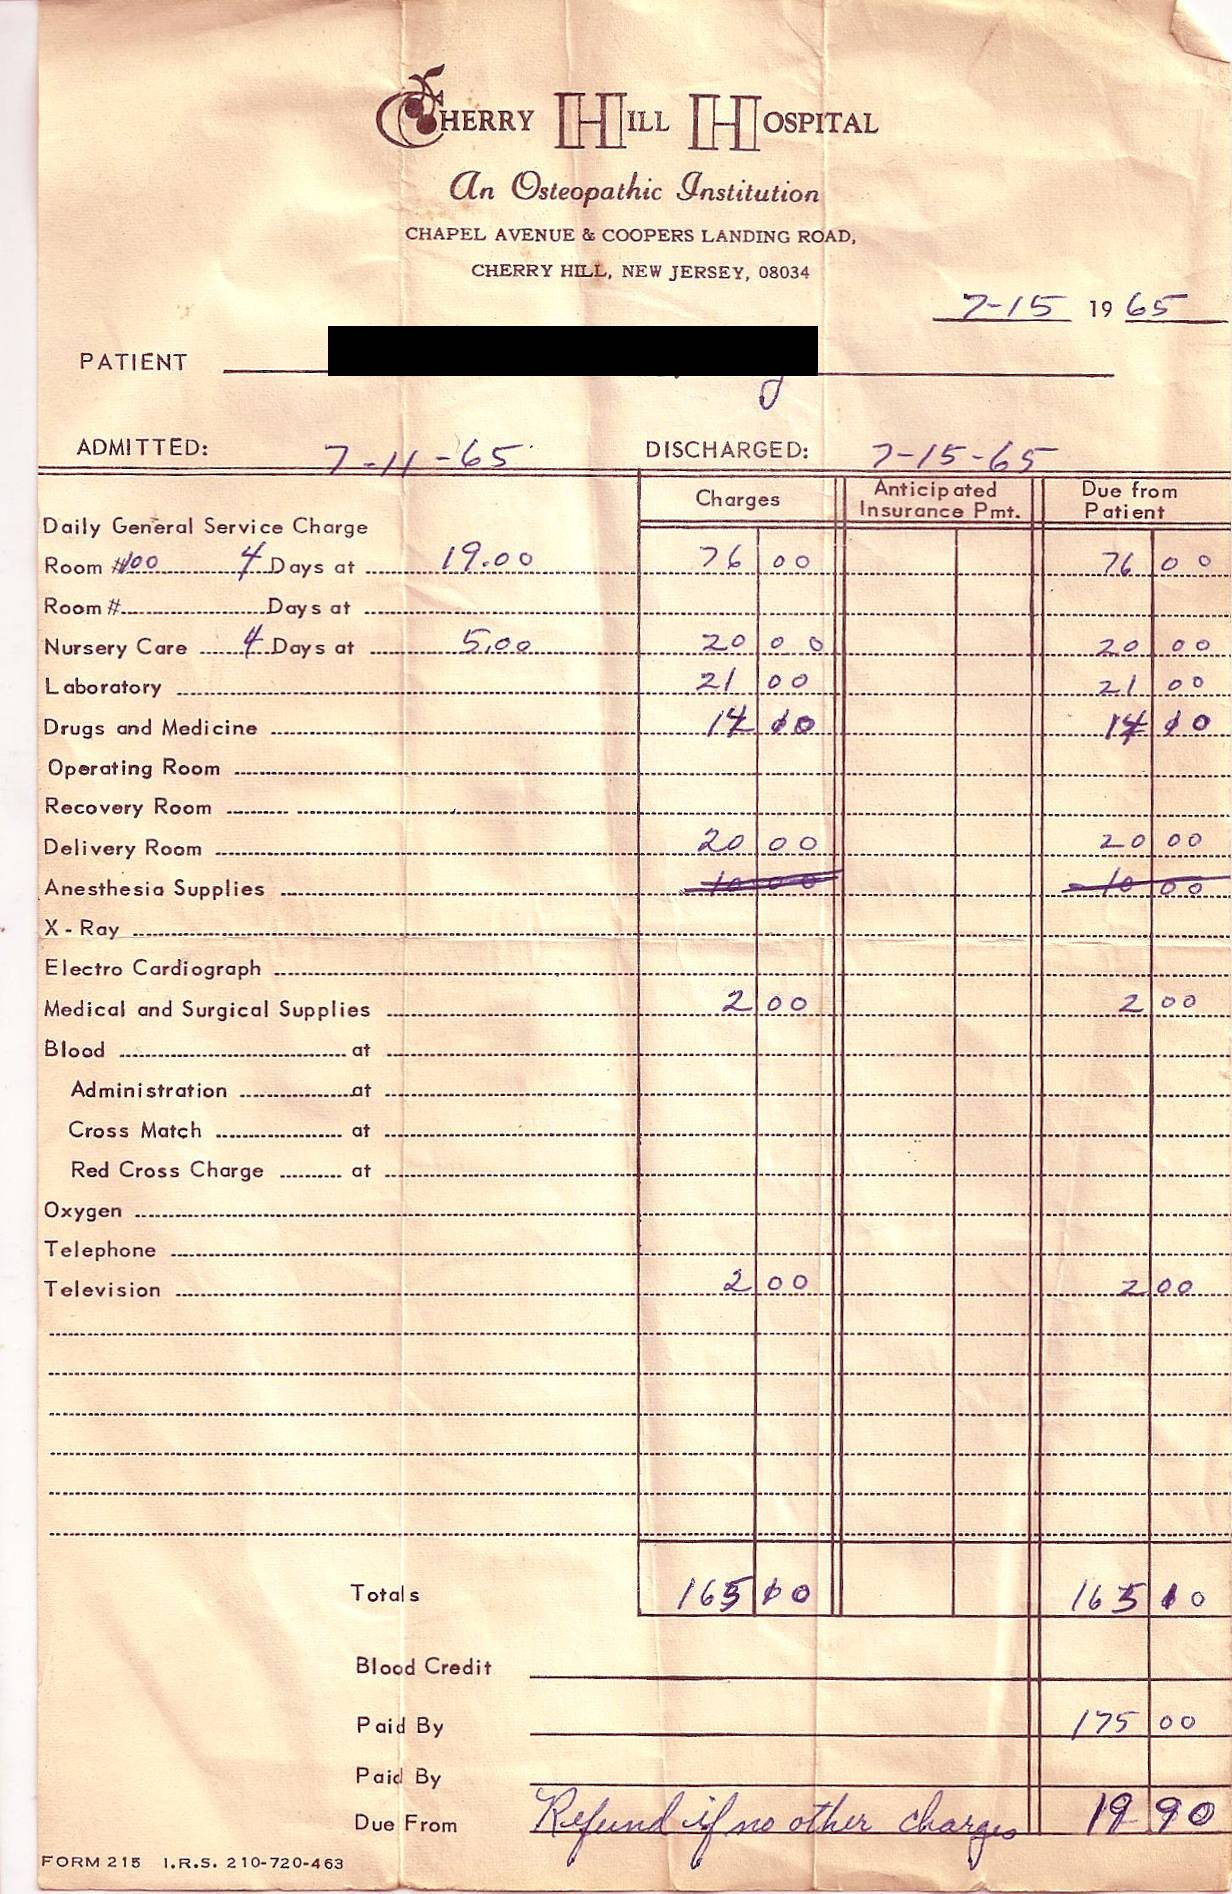 CHERRY HILL HOSPITAL
An Osteopathic Institution
CHAPEL AVENUE & COOPERS LANDING ROAD,
CHERRY HILL, NEW JERSEY, 08034
7-15 19 65
PATIENT
ADMITTED: 7-11-65 DISCHARGED: 7-15-65
Charges Anticipated Insurance Pmt. Due from Patient
Daily General Service Charge
Room #100 4 Days at 19.00 76 00 76 00
Room # Days at
Nursery Care 4 Days at 5.00 20 00 20 00
Laboratory 21 00 21 00
Drugs and Medicine 14 10 14 10
Operating Room
Recovery Room
Delivery Room 20 00 20 00
Anesthesia Supplies 10 00 10 00
X-Ray
Electro Cardiograph
Medical and Surgical Supplies 2 00 2 00
Blood at
Administration at
Cross Match at
Red Cross Charge at
Oxygen
Telephone
Television 2 00 2 00
Totals 165 10 165 10
Blood Credit
Paid By 175 00
Paid By
Due From Refund if no other charges 19 90
FORM 215 I.R.S. 210-720-463